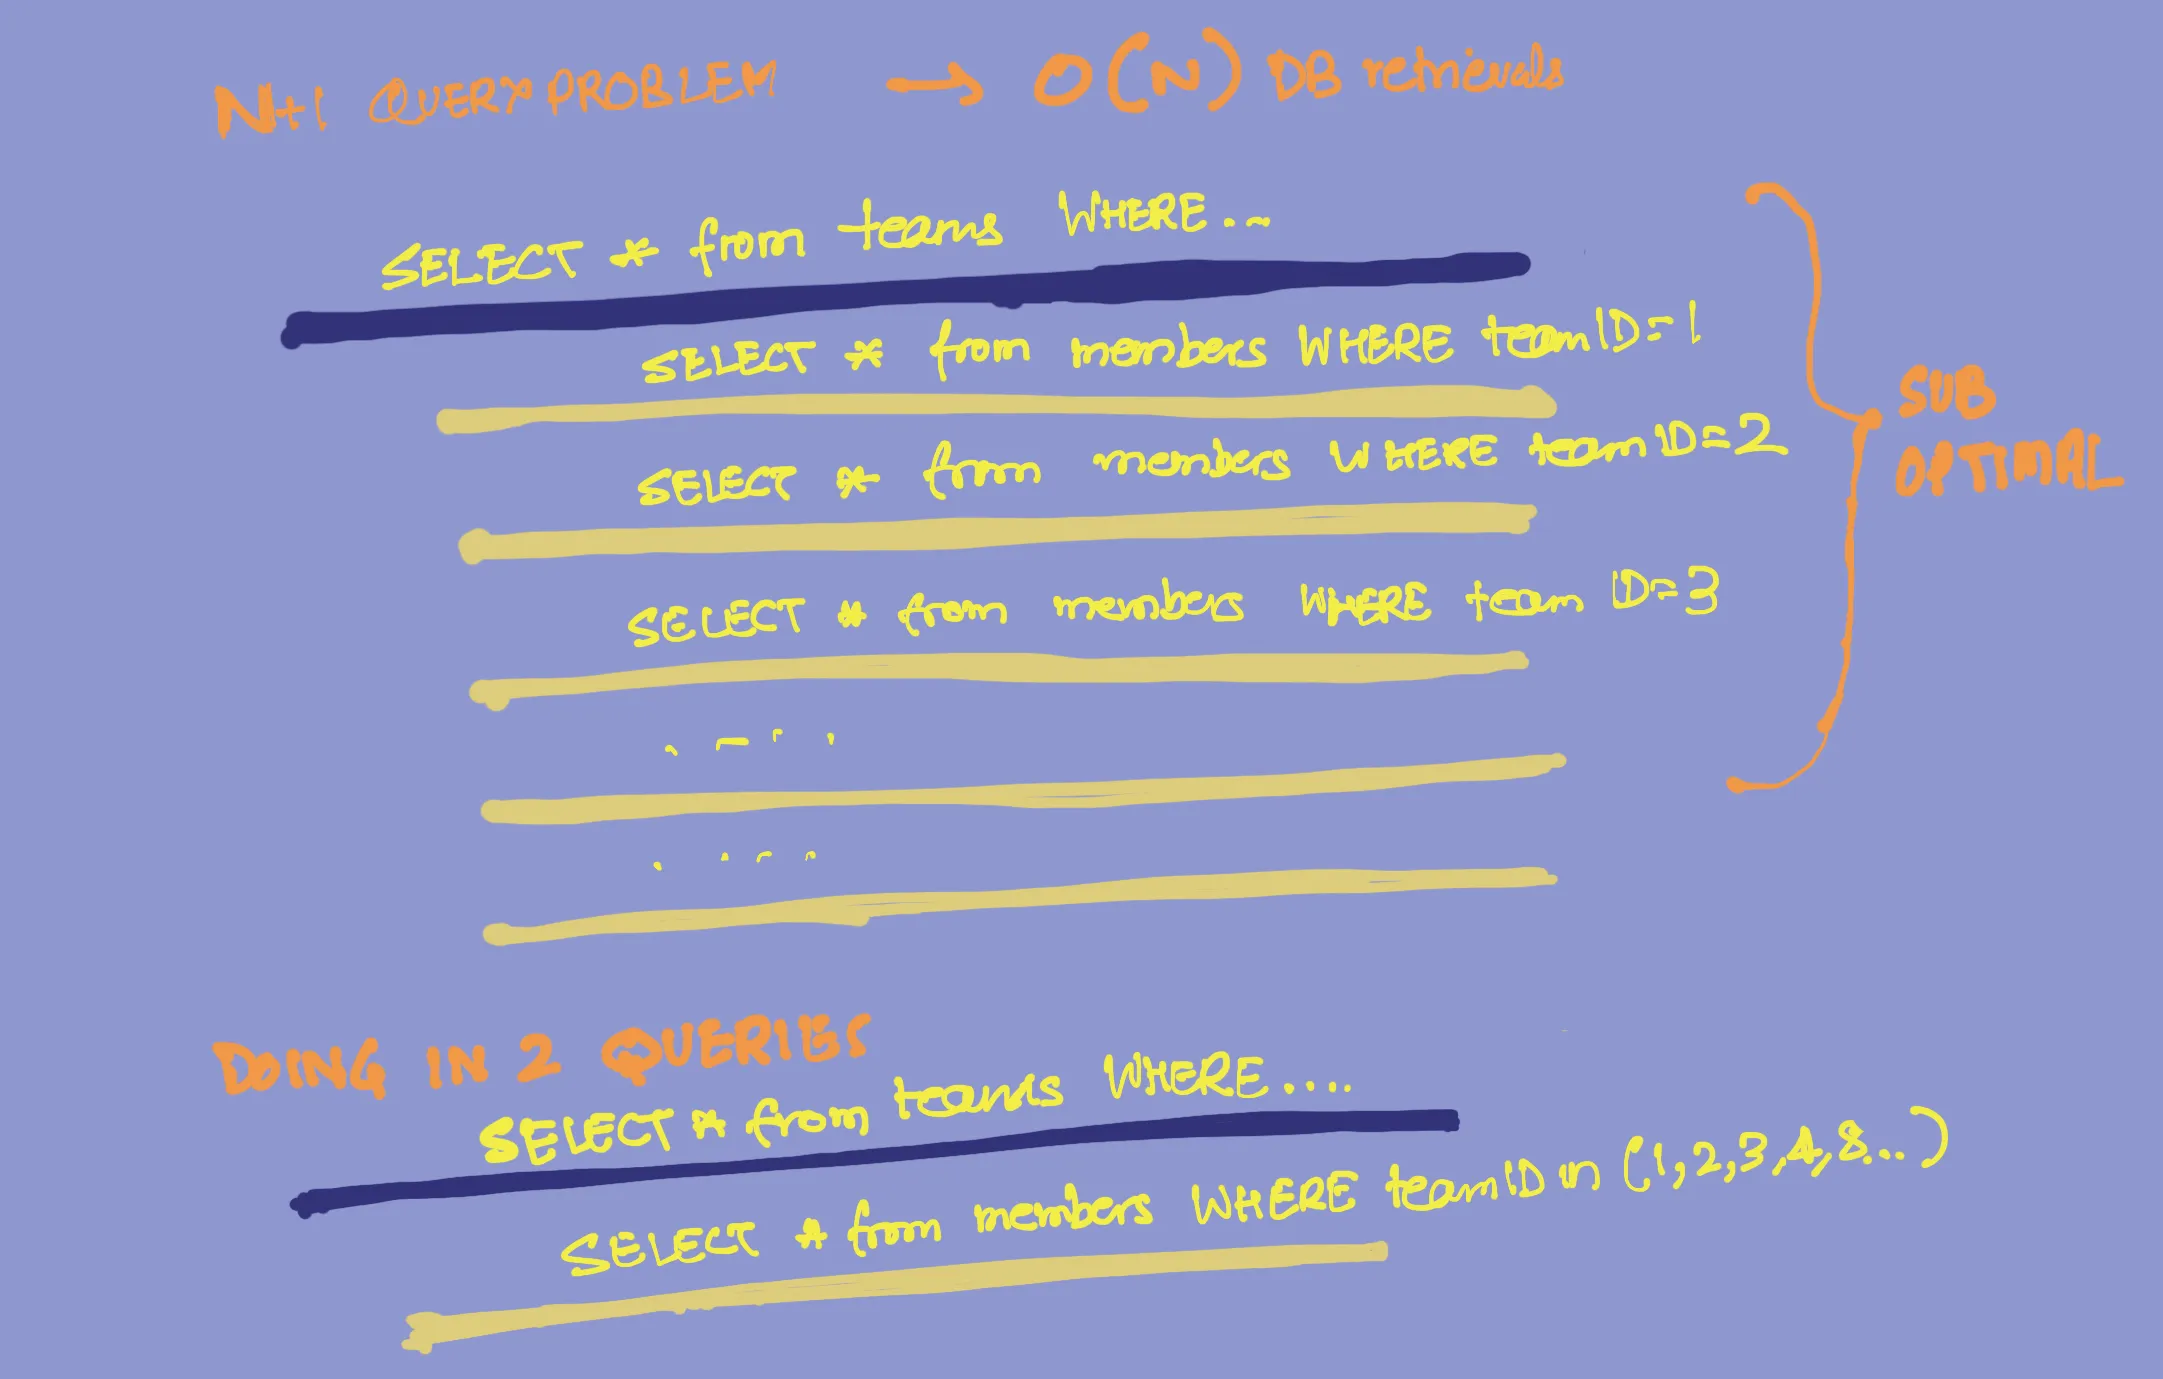 N+1 QUERY PROBLEM → O(N) DB retrievals
SELECT * from teams WHERE...
SELECT * from members WHERE teamID=1
SELECT * from members WHERE teamID=2
SELECT * from members WHERE team ID=3
....
....
SUB
OPTIMAL
DOING IN 2 QUERIES
SELECT * from teams WHERE....
SELECT * from members WHERE teamID in (1,2,3,4,8...)